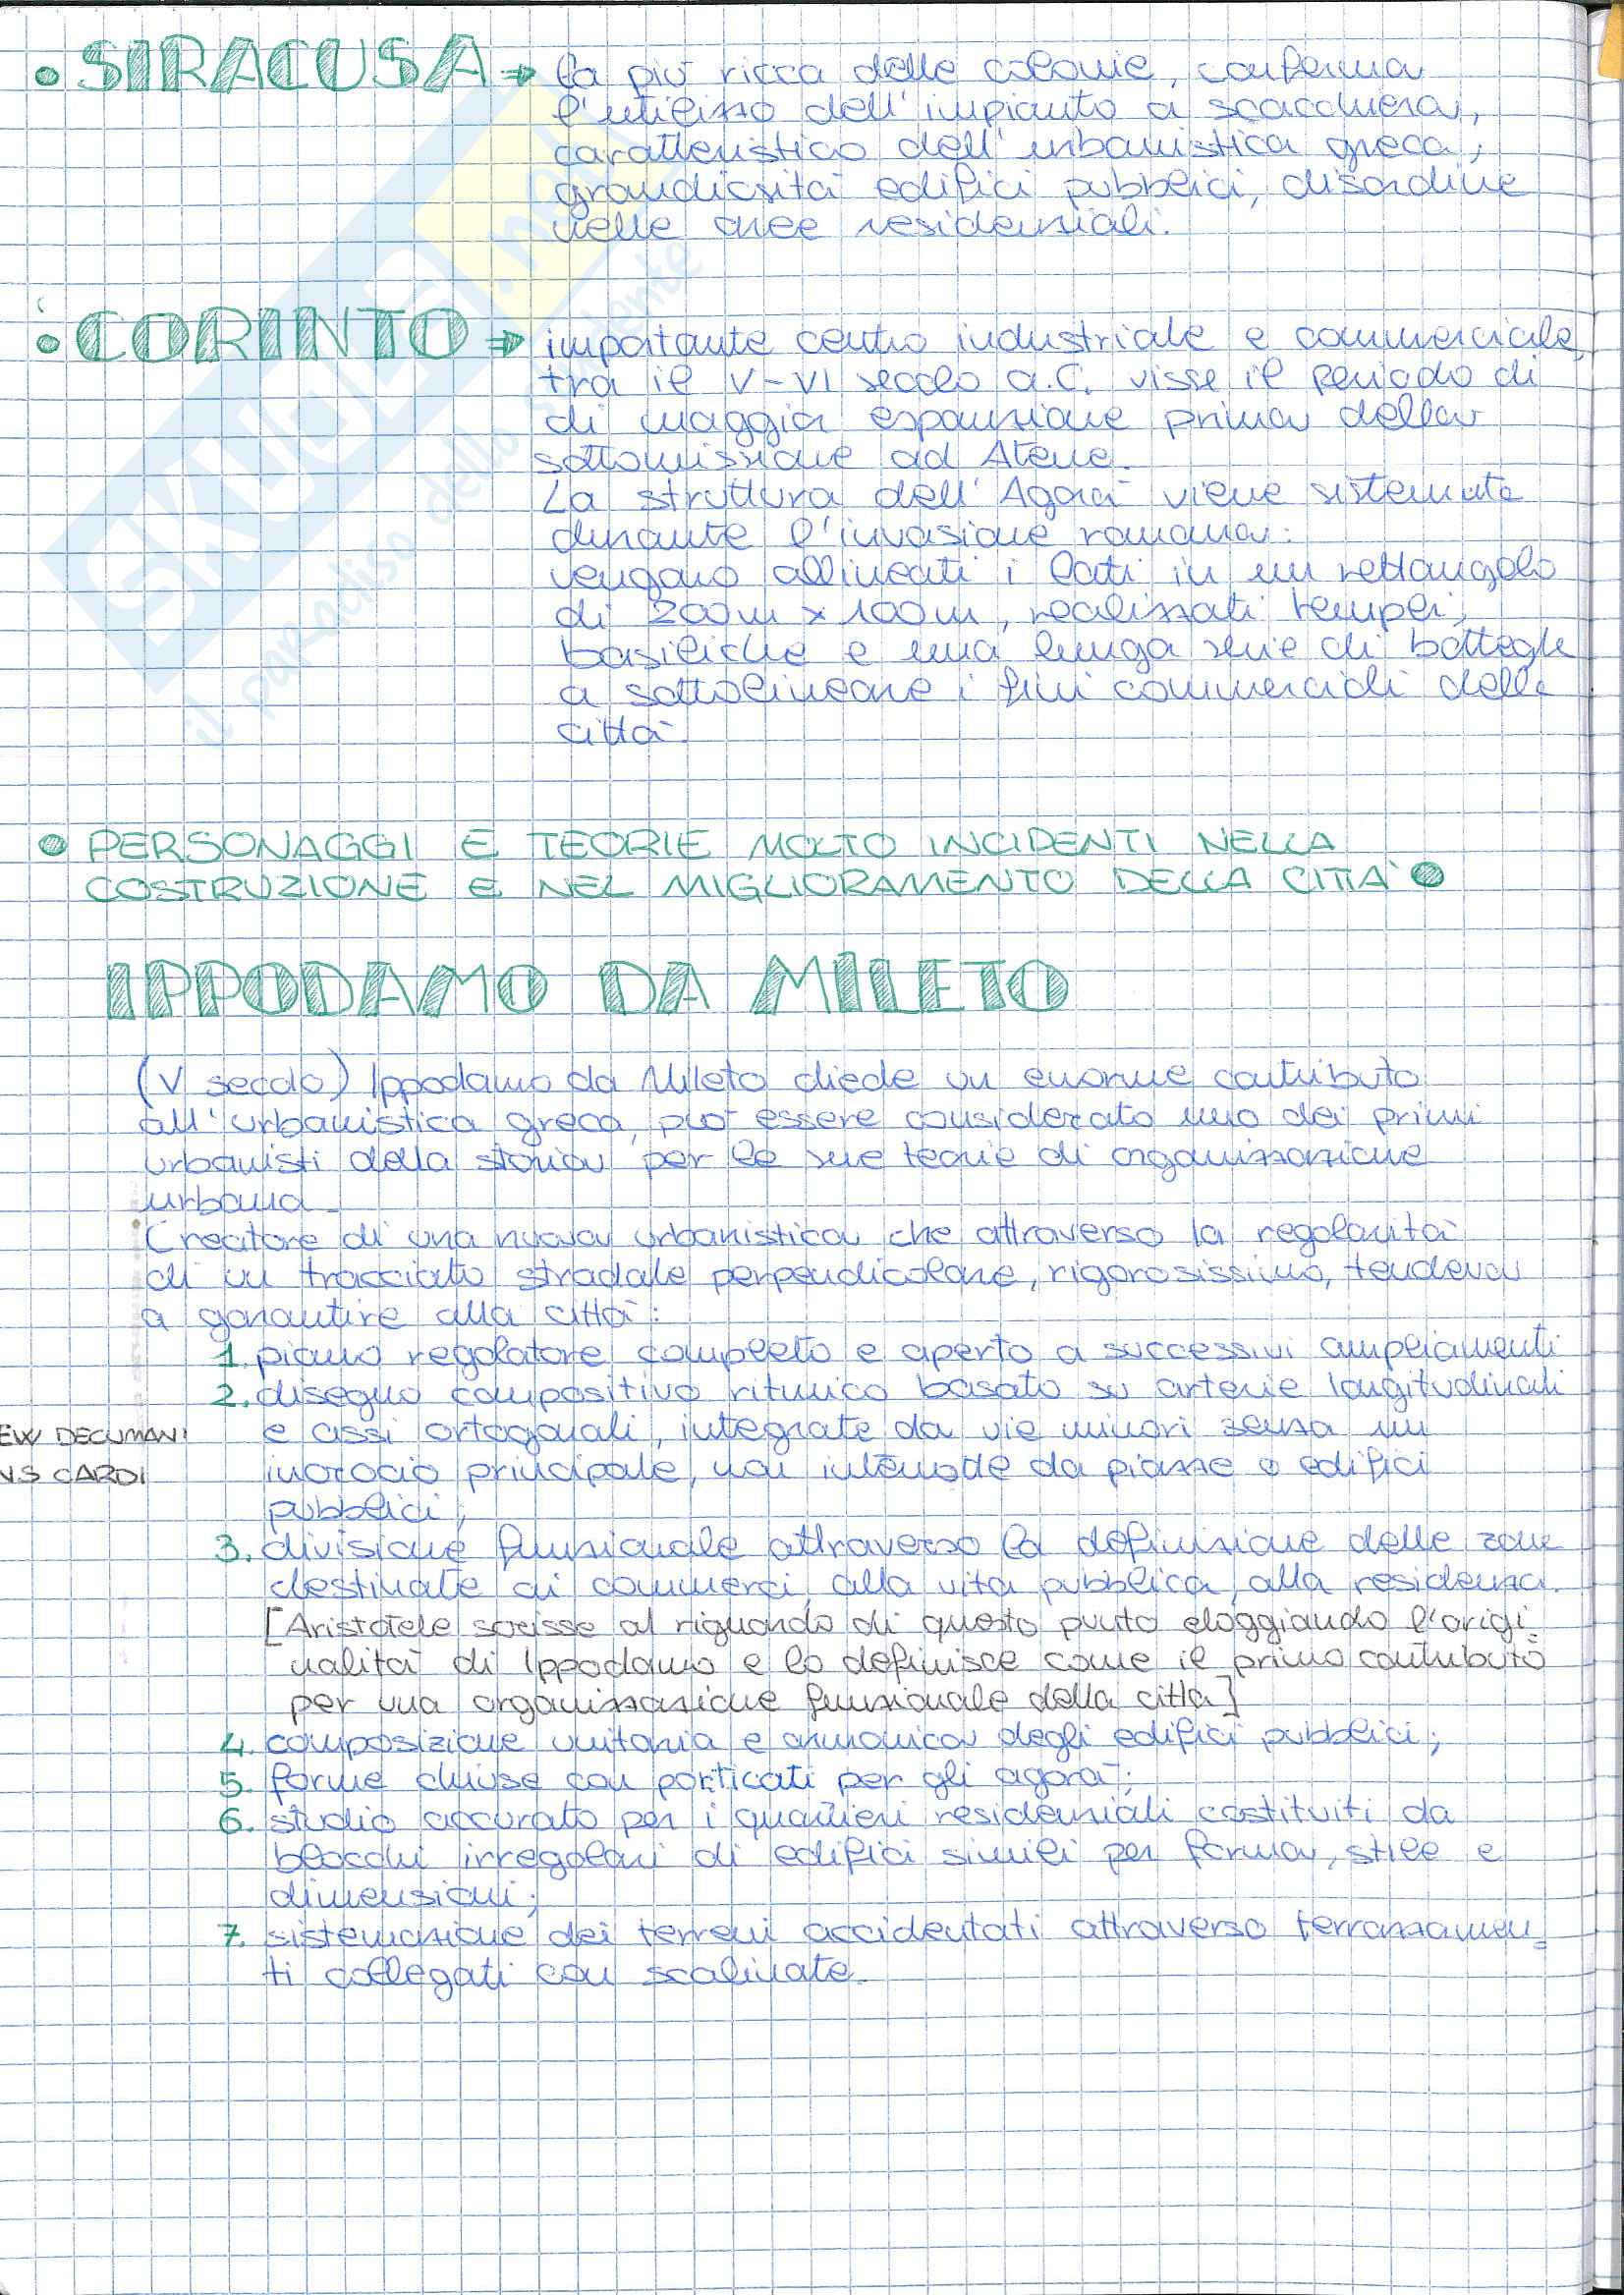 • SIRACUSA → la più ricca delle colonie, conferma
l'utilizzo dell'impianto a scacchiera,
caratteristico dell'urbanistica greca;
grandiosità edifici pubblici, disordine
nelle aree residenziali.
• CORINTO → importante centro industriale e commerciale,
tra il V-VI secolo a.C. visse il periodo di
di maggior espansione prima della
sottomissione ad Atene.
La struttura dell'Agorà viene sistemata
durante l'invasione romana:
vengono allineati i lati in un rettangolo
di 200m x 100m, realizzati templi,
basiliche e una lunga serie di botteghe
a sottolineare i fini commerciali della
città.
• PERSONAGGI E TEORIE MOLTO INCIDENTI NELLA
COSTRUZIONE E NEL MIGLIORAMENTO DELLA CITTÀ •
IPPODAMO DA MILETO
(V secolo) Ippodamo da Mileto diede un enorme contributo
all'urbanistica greca, può essere considerato uno dei primi
urbanisti della storia per le sue teorie di organizzazione
urbana.
Creatore di una nuova urbanistica che attraverso la regolarità
di un tracciato stradale perpendicolare, rigorosissimo, tendeva
a garantire alla città:
1. piano regolatore completo e aperto a successivi ampliamenti
2. disegno compositivo ritmico basato su arterie longitudinali
EW DECUMANI e assi ortogonali, integrate da vie minori senza un
NS CARDI incrocio principale, mai interrotte da piazze o edifici
pubblici;
3. divisione funzionale attraverso la definizione delle zone
destinate ai commerci, alla vita pubblica, alla residenza.
[Aristotele scrisse al riguardo di questo punto eloggiando l'origi=
nalità di Ippodamo e lo definisce come il primo contributo
per una organizzazione funzionale della città]
4. composizione unitaria e armonica degli edifici pubblici;
5. forme chiuse con porticati per gli agorà;
6. studio accurato per i quartieri residenziali costituiti da
blocchi irregolari di edifici simili per forma, stile e
dimensioni;
7. sistemazione dei terreni accidentati attraverso terrazzamen=
ti collegati con scalinate.
SKUOLA.net
il paradiso dello studente